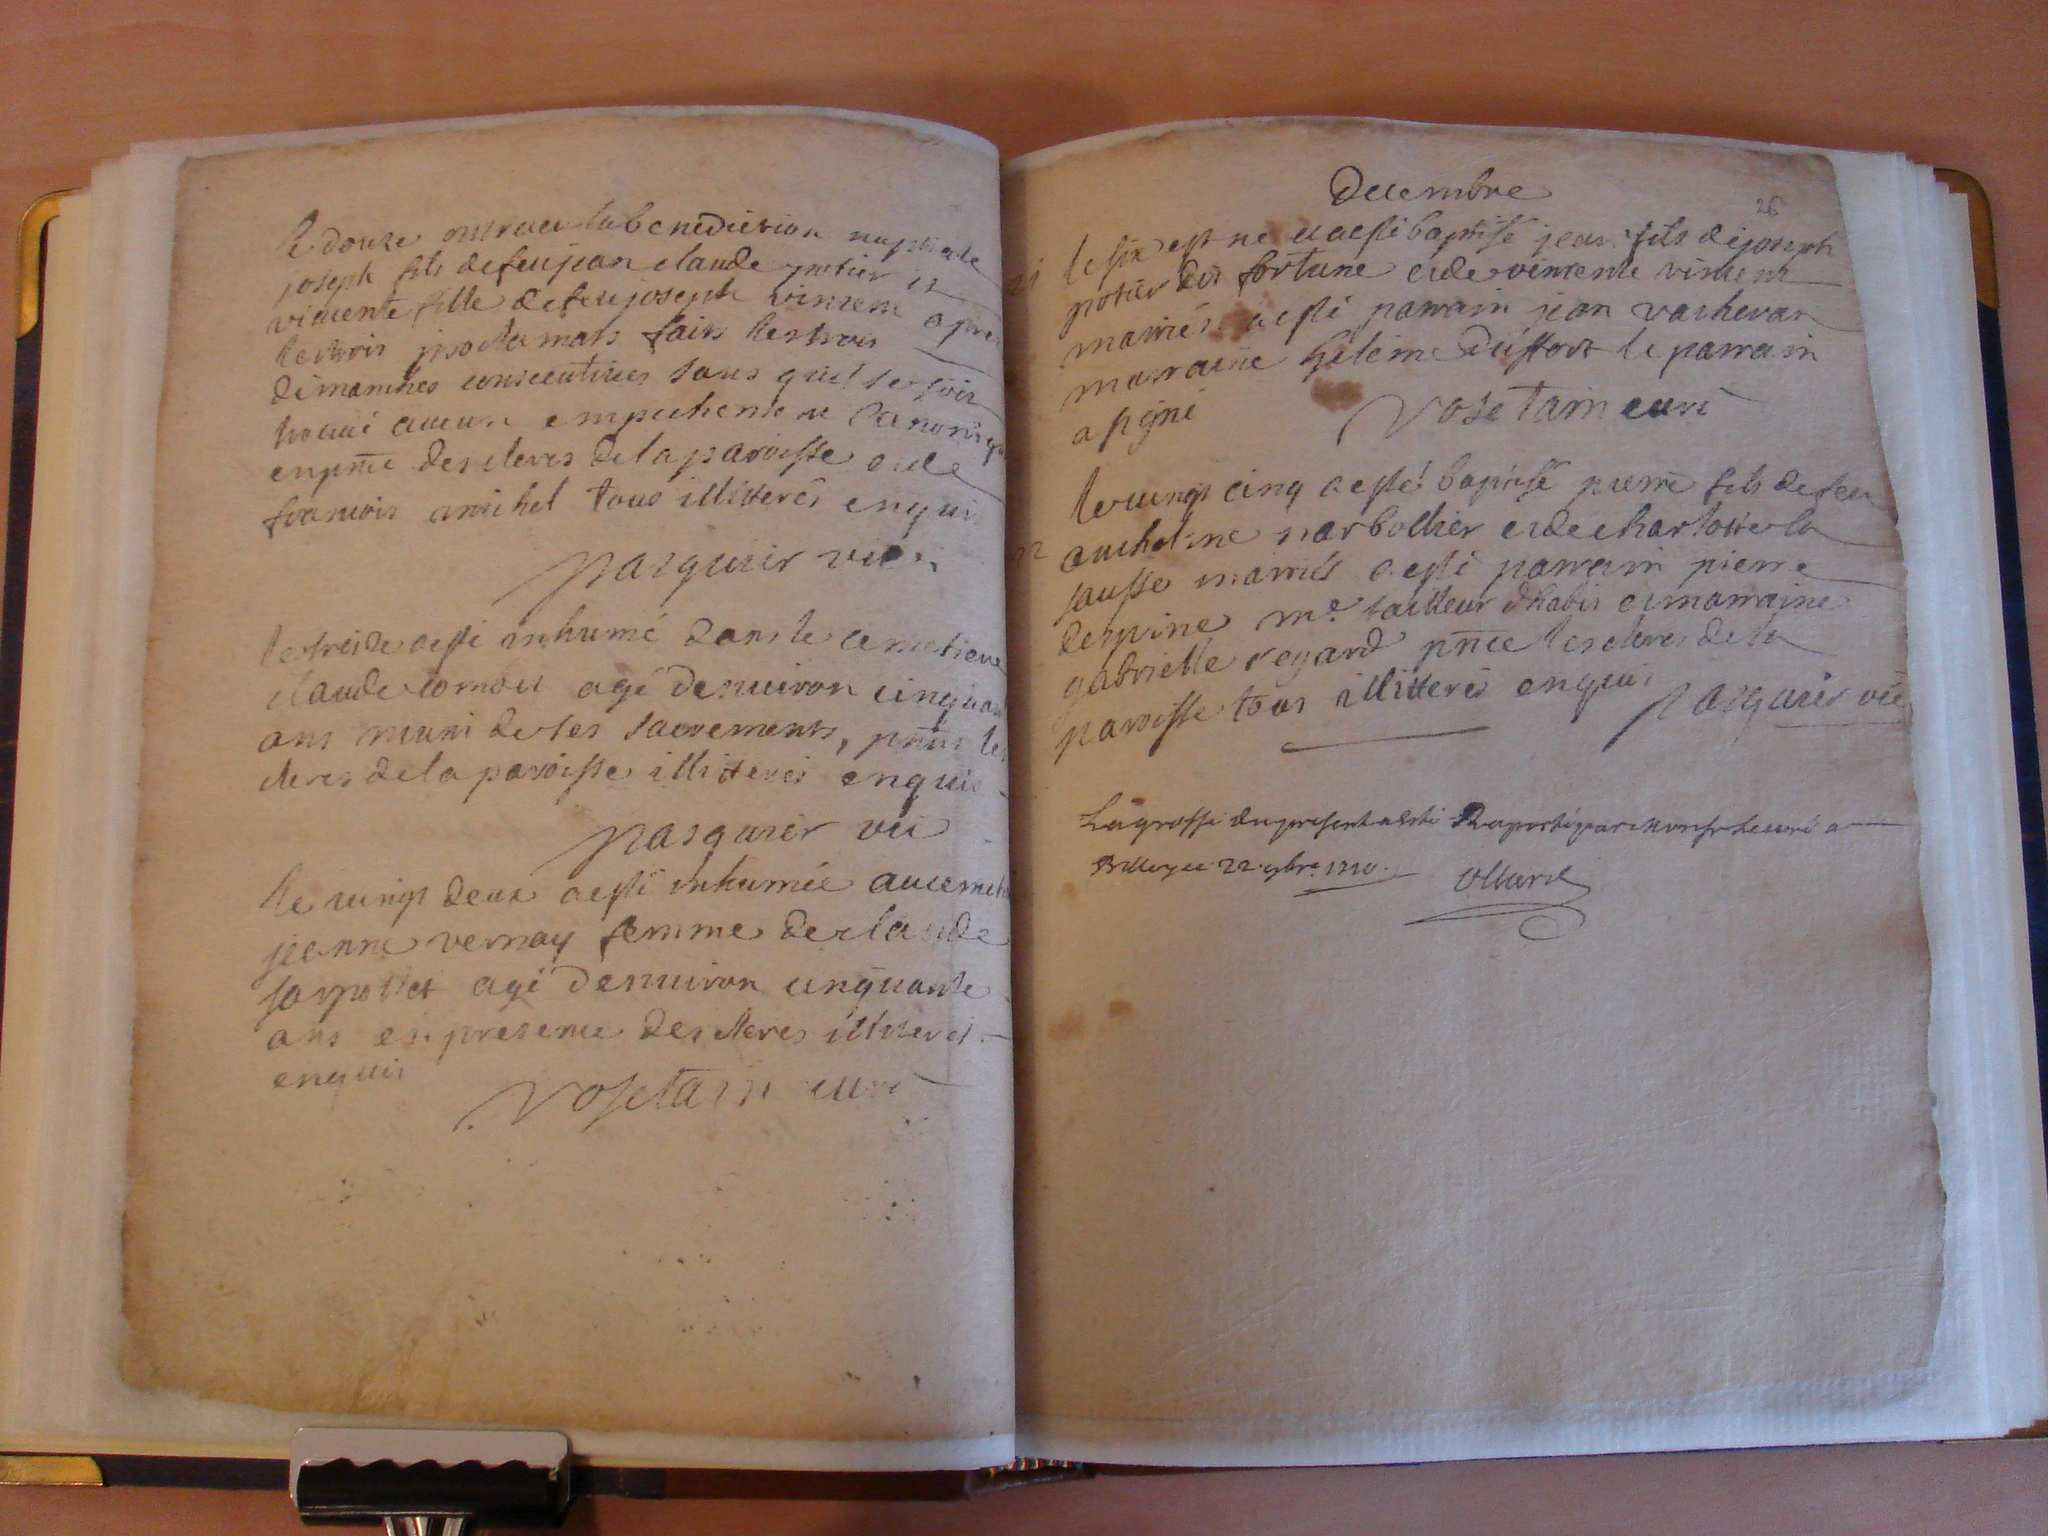 le douze ont receu la benediction nuptiale
joseph fils de feu jean claude potier et
vincente fille de feu joseph vincent apres
les trois proclamats faits les trois
dimanches consecutives sans qu'il se soit
trouvé aucun empechement canonique
en pnce des clercs de la paroisse et de
francois michel tous illitterés enquis
pasquier vic
le treize a esté inhumé dans le cemetiere
claude agé denuiron cinquante
ans muni de ses sacrements, pnts les
clercs de la paroisse illitterés enquis
pasquier vic
le vingt deux a esté inhumée au cemetiere
jeanne vernay femme de claude
sarpollet agé denuiron cinquante
ans en presence des clercs illiterés
enquis
vosetain curé
Decembre
26
21 le six est né et a esté baptisé jean fils de joseph
potier dit fortune et de vincente vincent
mariés a esté parrain jean vacheran
marraine heleine duffort le parrain
a signé
vosetain curé
le vingt cinq a esté baptisé pierre fils de feu
22 anthelme narbollier et de charlotte la
sausse mariés a esté parrain pierre
despine me tailleur d'habit et marraine
gabrielle regard pnce les clercs de la
paroisse tous illitterés enquis
pasquier vic
La grosse du present a esté Raporté par Monsr le curé a
22 9bre 1710.